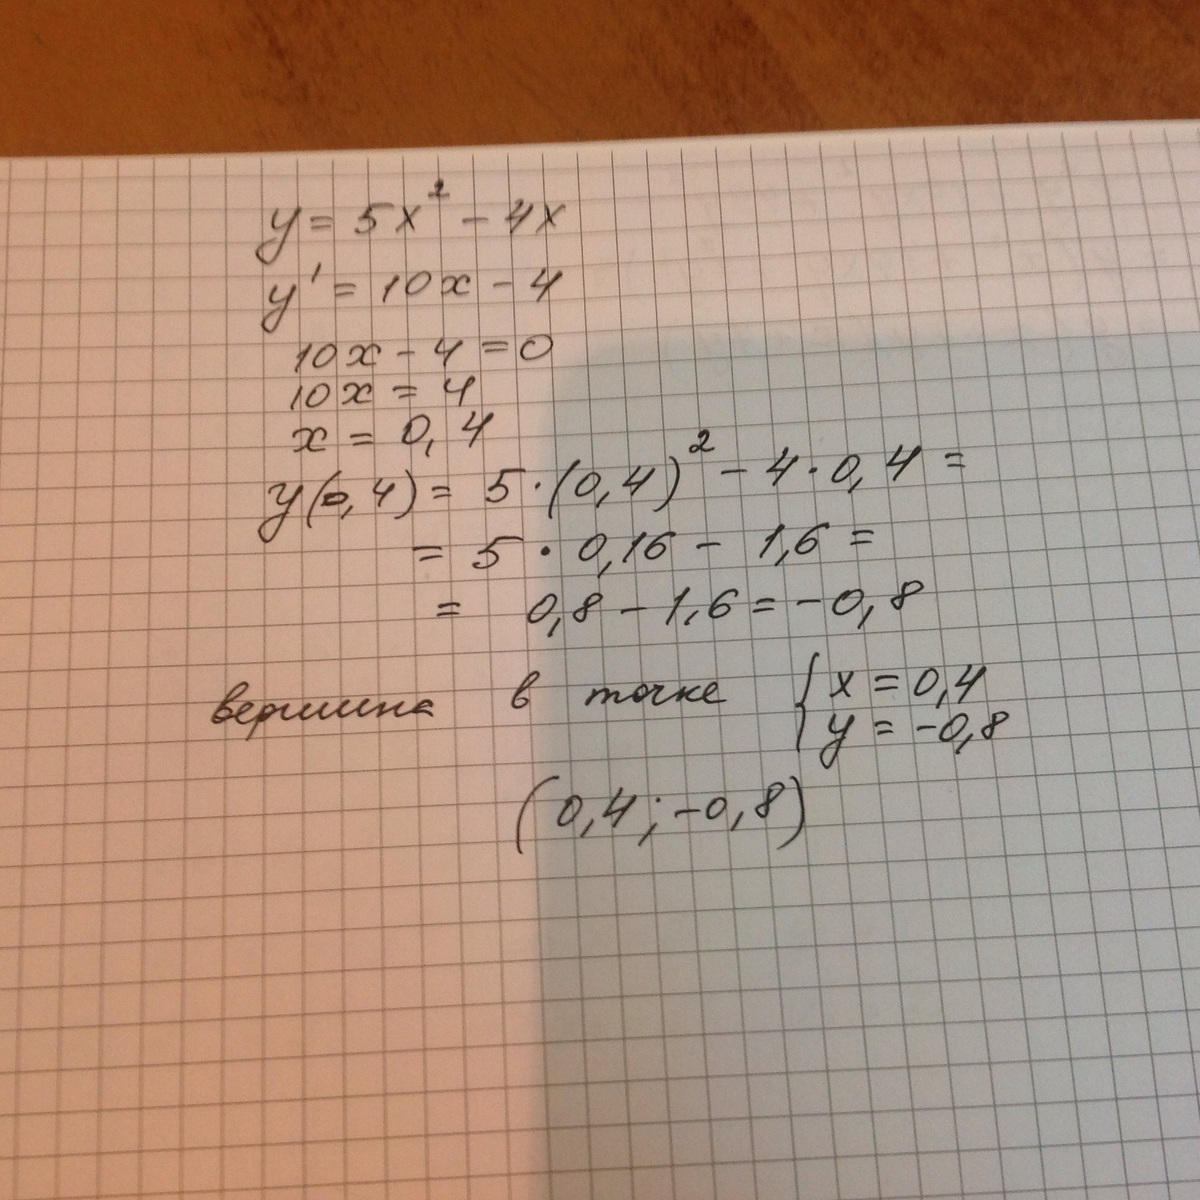 y = 5x² - 4x
y' = 10x - 4
10x - 4 = 0
10x = 4
x = 0,4
y(0,4) = 5·(0,4)² - 4·0,4 =
= 5 · 0,16 - 1,6 =
= 0,8 - 1,6 = -0,8
вершина в точке { x = 0,4
y = -0,8
(0,4; -0,8)